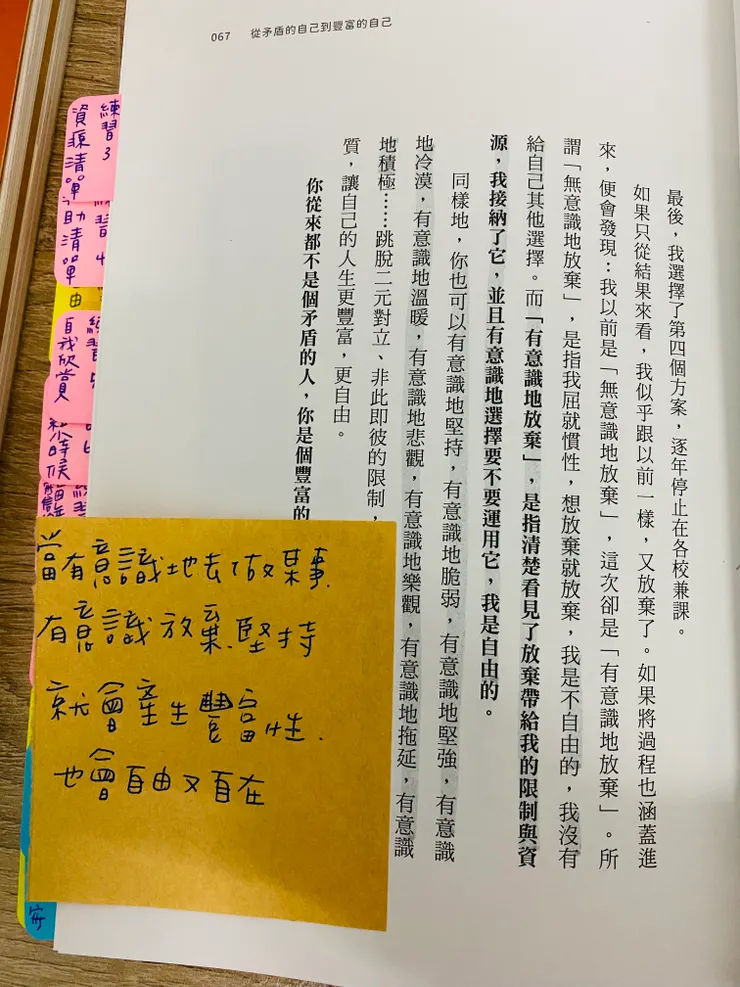 067 從矛盾的自己到豐富的自己
最後，我選擇了第四個方案，逐年停止在各校兼課。
如果只從結果來看，我似乎跟以前一樣，又放棄了。如果將過程也涵蓋進
來，便會發現：我以前是「無意識地放棄」，這次卻是「有意識地放棄」。所
謂「無意識地放棄」，是指我屈就慣性，想放棄就放棄，我是不自由的，我沒有
給自己其他選擇。而「有意識地放棄」，是指清楚看見了放棄帶給我的限制與資
源，我接納了它，並且有意識地選擇要不要運用它，我是自由的。
同樣地，你也可以有意識地堅持，有意識地脆弱，有意識地堅強，有意識
地冷漠，有意識地溫暖，有意識地悲觀，有意識地樂觀，有意識地拖延，有意識
地積極……跳脫二元對立、非此即彼的限制，
質，讓自己的人生更豐富，更自由。
你從來都不是個矛盾的人，你是個豐富的
練習3
資源清單
練習4
助清單
由
練習5
自我欣賞
6
小時候
練習
當有意識地去做某事.
有意識放棄.堅持
就會產生豐富性.
也會自由又自在